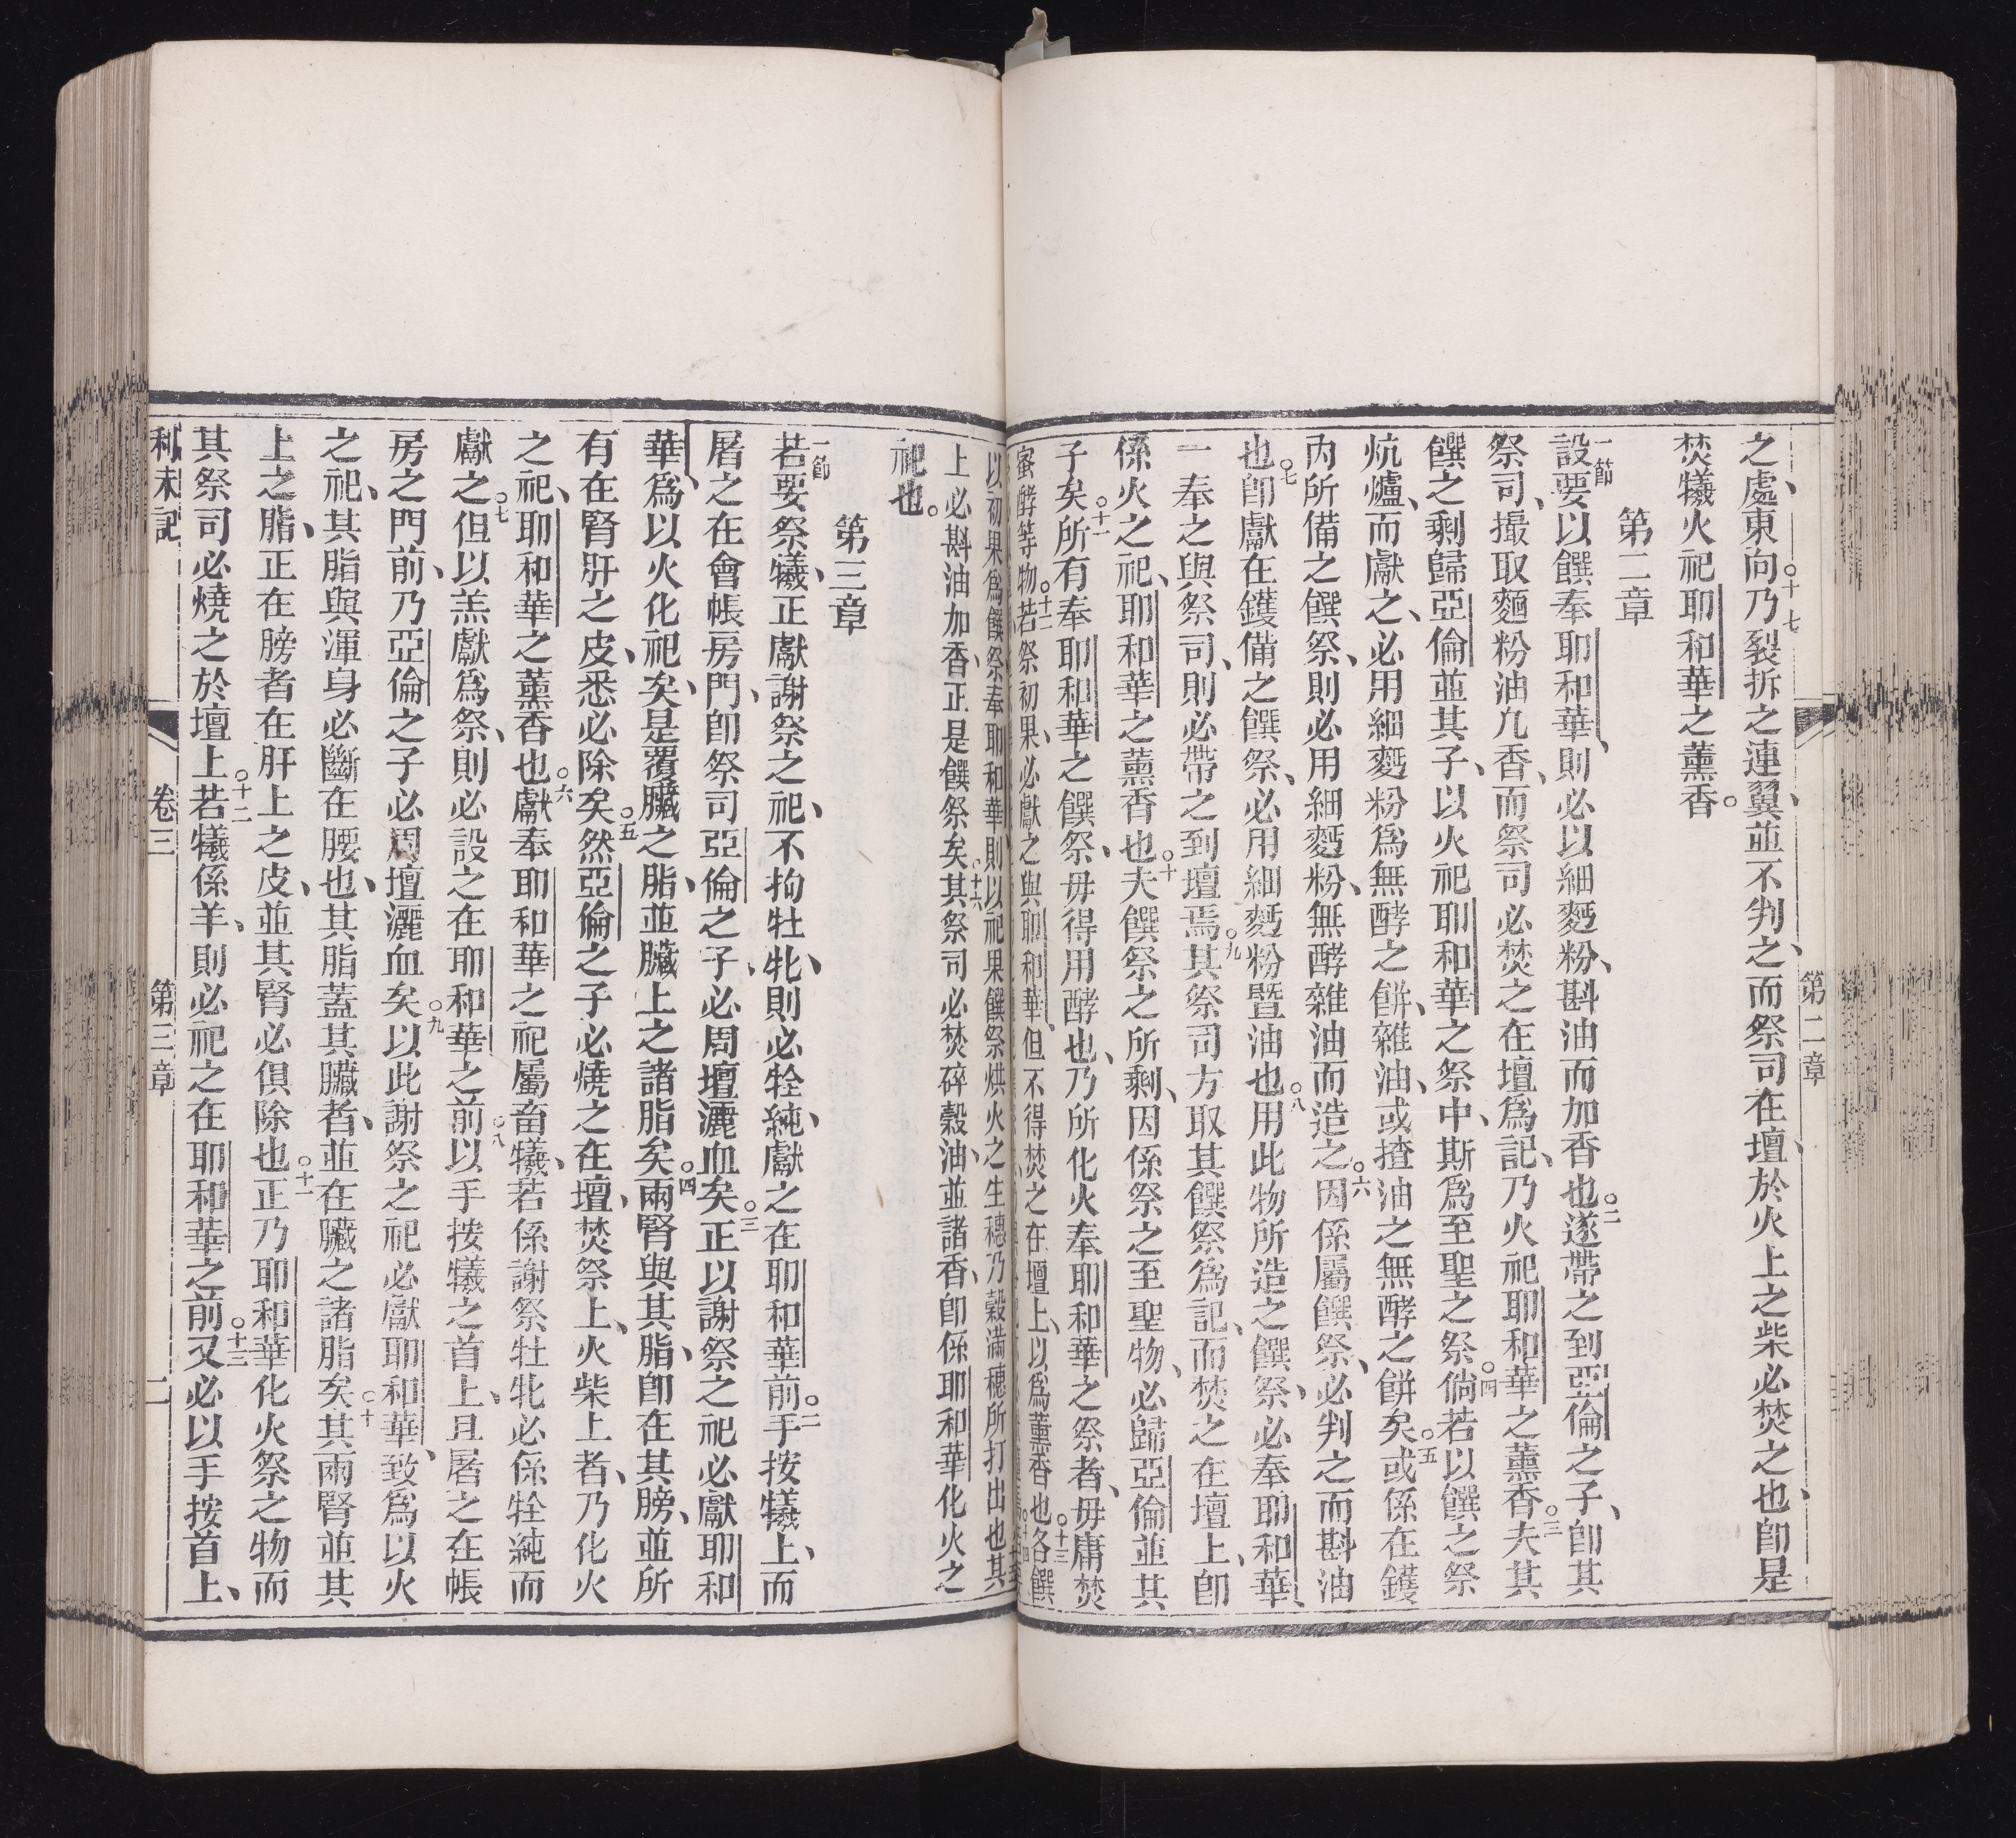 之處、東向○十七乃裂拆之連翼、並不判之、而祭司在壇、於火上之柴必焚之也、卽是
焚犧火祀耶和華之薰香。
第二章
一節設要以饌奉耶和華、則必以細麪粉、斟油而加香也○二遂帶之到亞倫之子、卽其
祭司、撮取麵粉油九香、而祭司必焚之在壇爲記、乃火祀耶和華之薰香○三夫其
饌之剩歸亞倫並其子、以火祀耶和華之祭中、斯爲至聖之祭○四倘若以饌之祭
炕爐、而獻之、必用細麪粉爲無酵之餅、雜油、或揸油之無酵之餅矣○五或係在鑊
內所備之饌祭、則必用細麪粉、無酵雜油而造之○六因係屬饌祭、必判之而斟油
也○七卽獻在鑊備之饌祭、必用細麪粉暨油也○八用此物所造之饌祭、必奉耶和華、
一奉之與祭司、則必帶之到壇焉○九其祭司方取其饌祭爲記、而焚之在壇上、卽
係火之祀、耶和華之薰香也○十夫饌祭之所剩、因係祭之至聖物、必歸亞倫並其
子矣○十一所有奉耶和華之饌祭、毋得用酵也、乃所化火奉耶和華之祭者、毋庸焚
蜜酵等物○十二若祭初果、必獻之與耶和華、但不得焚之在壇上、以爲薰香也○十三各饌
以初果爲饌祭奉耶和華、則以祀果饌祭烘火之生穗、乃穀滿穗所打出也其
上必斟油加香、正是饌祭矣○十六其祭司必焚碎穀油、並諸香、卽係耶和華化火之
祀也。
第三章
一節若要祭犧、正獻謝祭之祀、不拘牡牝、則必牷純、獻之在耶和華前○二手按犧上、而
屠之在會帳房門、卽祭司亞倫之子、必周壇灑血矣○三正以謝祭之祀必獻耶和
華、爲以火化祀矣、是覆臟之脂、並臟上之諸脂矣○四兩腎與其脂、卽在其膀、並所
有在腎肝之皮、悉必除矣○五然亞倫之子必燒之在壇、焚祭上、火柴上者、乃化火
之祀、耶和華之薰香也○六獻奉耶和華之祀屬畜犧、若係謝祭牡牝必係牷純而
獻之○七但以羔獻爲祭、則必設之在耶和華之前○八以手按犧之首上、且屠之在帳
房之門前、乃亞倫之子必周壇灑血矣○九以此謝祭之祀必獻耶和華、致爲以火
之祀、其脂與渾身必斷在腰也、其脂蓋其臟者、並在臟之諸脂矣○十其兩腎並其
上之脂、正在膀者在肝上之皮、並其腎必俱除也○十一正乃耶和華化火祭之物而
其祭司必燒之於壇上○十二若犧係羊、則必祀之在耶和華之前○十三又必以手按首上、
利未記　卷三　第三章　二
第二章